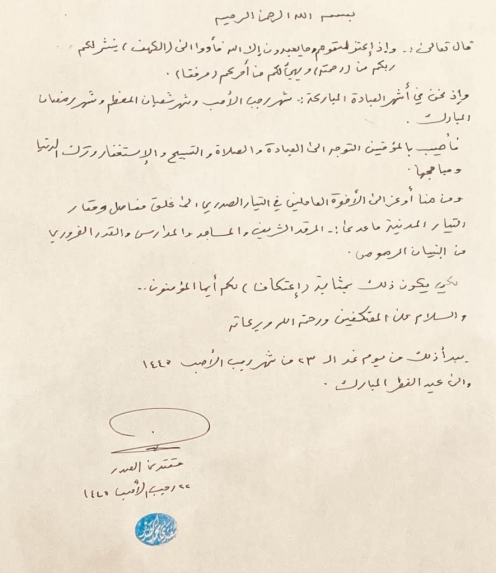 بسمه الله الرحمن الرحيم
قال تعالى :- وإذ إعتزلتموهم وما يعبدون إلا الله فأووا الى (الكهف) ينشر لكم
ربكم من (رحمته) ويهيأ لكم من أمركم (مرفقا) .
وإذ نحن في أشهر العبادة المباركة :. شهر رجب الأصب وشهر شعبان المعظم وشهر رمضان
المبارك .
فأهيب بالمؤمنين التوجه الى العبادة والصلاة والتسبيح والإستغفار وترك الدنيا
ومباهجها .
ومن هنا أوعز الى الأخوة العاملين في التيار الصدري الى غلق مفاصل ومقار
التيار المدنية ماعدى :- المرقد الشريف والمساجد والمدارس والقدر الضروري
من البنيان المرصوص .
لكي يكون ذلك بمثابة (إعتكاف) لكم أيها المؤمنون ..
والسلام على المعتكفين ورحمة الله وبركاته
يبدأ ذلك من يوم غد الـ ٢٣ من شهر رجب الأصب ١٤٤٥
والى عيد الفطر المبارك .
مقتدى الصدر
٢٢ رجب الأصب ١٤٤٥